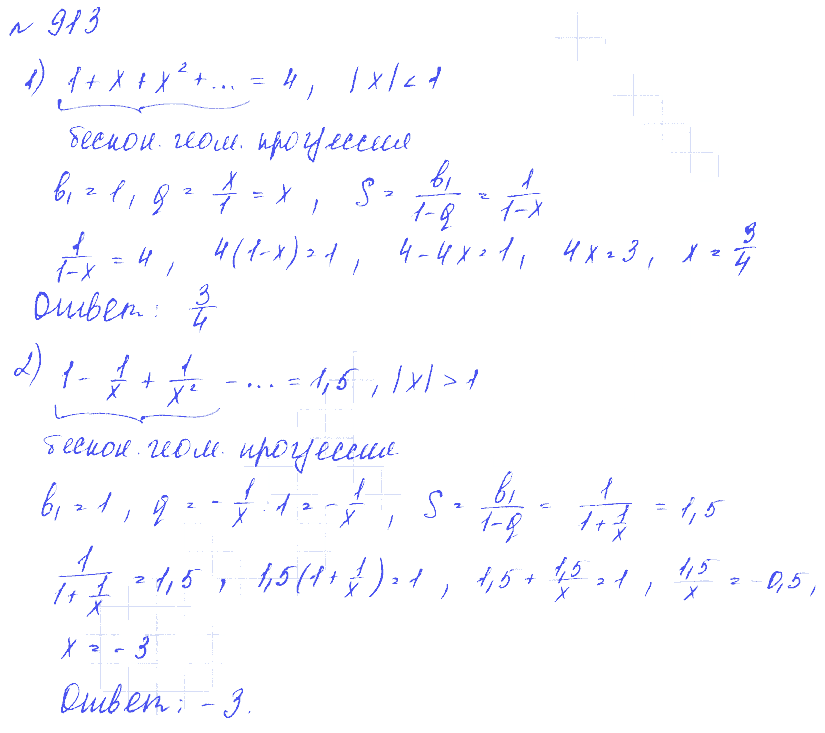 № 913
1) 1 + x + x² + ... = 4, |x| < 1
бескон. геом. прогрессия
b₁ = 1, q = x/1 = x, S = b₁/(1-q) = 1/(1-x)
1/(1-x) = 4, 4(1-x) = 1, 4 - 4x = 1, 4x = 3, x = 3/4
Ответ: 3/4
2) 1 - 1/x + 1/x² - ... = 1,5, |x| > 1
бескон. геом. прогрессия.
b₁ = 1, q = -1/x : 1 = -1/x, S = b₁/(1-q) = 1/(1 + 1/x) = 1,5
1/(1 + 1/x) = 1,5, 1,5(1 + 1/x) = 1, 1,5 + 1,5/x = 1, 1,5/x = -0,5,
x = -3
Ответ: -3.